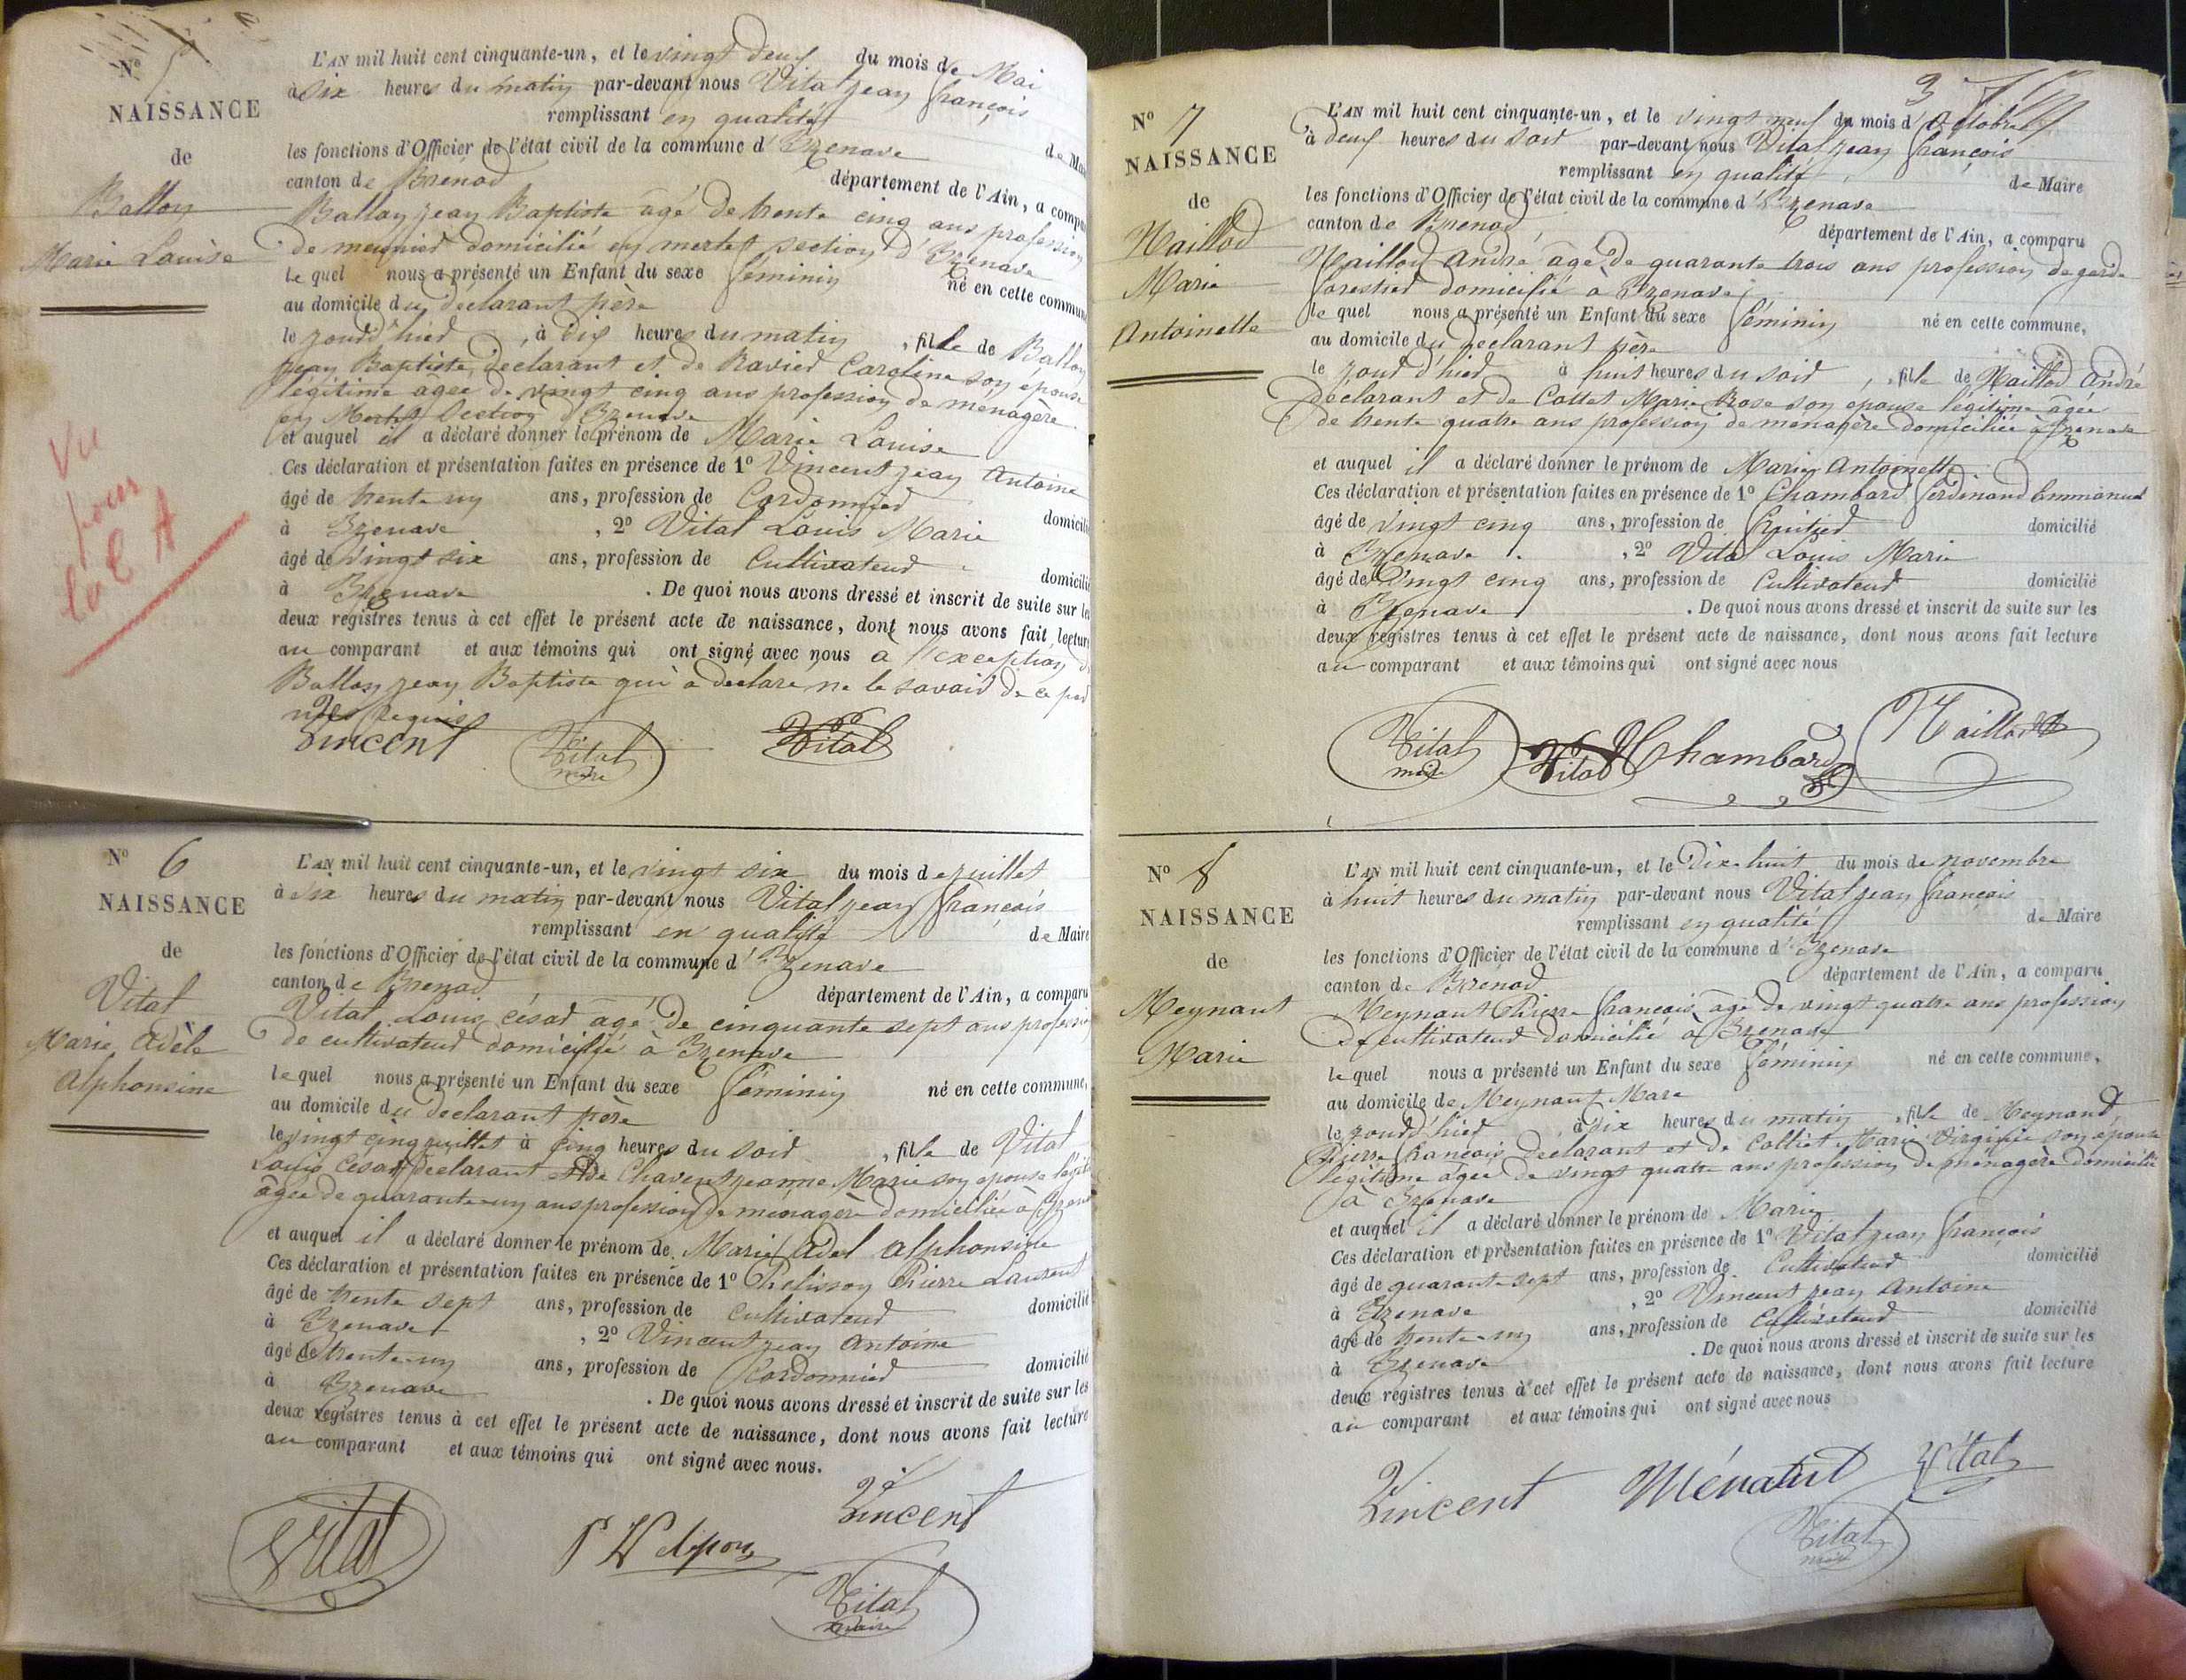 N° 5
NAISSANCE
de
Ballon
Marie Louise
Vu
pour
la C A
L'AN mil huit cent cinquante-un, et le vingt deux du mois de Mai
à six heures du matin par-devant nous Vital jean françois
remplissant en qualité de Maire
les fonctions d'Officier de l'état civil de la commune d' Izenave
canton de Brenod département de l'Ain, a comparu
Ballon jean Baptiste âgé de trente cinq ans profession
de meunier domicilié en section d'Izenave
lequel nous a présenté un Enfant du sexe féminin né en cette commune
au domicile du déclarant père
le jourd'hier, à dix heures du matin, fille de Ballon
jean Baptiste, declarant et de Ravier Caroline son épouse
légitime agée de vingt cinq ans profession de ménagère
en section d'Izenave
et auquel il a déclaré donner le prénom de Marie Louise
Ces déclaration et présentation faites en présence de 1° Vincent jean Antoine
âgé de trente un ans, profession de Cordonnier domicilié
à Izenave, 2° Vital Louis Marie
âgé de vingt six ans, profession de Cultivateur domicilié
à Izenave. De quoi nous avons dressé et inscrit de suite sur les
deux registres tenus à cet effet le présent acte de naissance, dont nous avons fait lecture
au comparant et aux témoins qui ont signé avec nous à l'exception de
Ballon jean Baptiste qui a declare ne le savoir de ce par
nous requis
Vincent Vital maire Vital
N° 6
NAISSANCE
de
Vital
Marie Adèle
Alphonsine
L'AN mil huit cent cinquante-un, et le vingt six du mois de juillet
à six heures du matin par-devant nous Vital jean françois
remplissant en qualité de Maire
les fonctions d'Officier de l'état civil de la commune d' Izenave
canton de Brenod département de l'Ain, a comparu
Vital Louis césar âgé de cinquante sept ans profession
de cultivateur domicilié à Izenave
lequel nous a présenté un Enfant du sexe féminin né en cette commune,
au domicile du declarant père
le vingt cinq juillet à cinq heures du soir, fille de Vital
Louis César declarant et de Chavent jeanne Marie son epouse
âgée de quarante un ans profession de ménagère domiciliée à Izenave
et auquel il a déclaré donner le prénom de Marie Adel alphonsine
Ces déclaration et présentation faites en présence de 1° Pelisson Pierre Laurent
âgé de trente sept ans, profession de cultivateur domicilié
à Izenave, 2° Vincent jean Antoine
âgé de trente un ans, profession de Cordonnier domicilié
à Izenave. De quoi nous avons dressé et inscrit de suite sur les
deux registres tenus à cet effet le présent acte de naissance, dont nous avons fait lecture
au comparant et aux témoins qui ont signé avec nous.
Vital Vincent
Vital
maire
3
N° 7
NAISSANCE
de
Maillod
Marie
Antoinette
L'AN mil huit cent cinquante-un, et le vingt neuf du mois d'Octobre
à deux heures du soir par-devant nous Vital jean françois
remplissant en qualité de Maire
les fonctions d'Officier de l'état civil de la commune d' Izenave
canton de Brenod département de l'Ain, a comparu
Maillod André âgé de quarante trois ans profession de garde
forestier domicilié à Izenave
lequel nous a présenté un Enfant du sexe féminin né en cette commune,
au domicile du declarant père
le jour d'hier à huit heures du soir, fille de Maillod André
declarant et de Cottet Marie Rose son epouse légitime âgée
de trente quatre ans profession de ménagère domiciliée à Izenave
et auquel il a déclaré donner le prénom de Marie Antoinette
Ces déclaration et présentation faites en présence de 1° Chambard ferdinand Emmanuel
âgé de vingt cinq ans, profession de fruitier domicilié
à Izenave, 2° Vital Louis Marie
âgé de vingt cinq ans, profession de Cultivateur domicilié
à Izenave. De quoi nous avons dressé et inscrit de suite sur les
deux registres tenus à cet effet le présent acte de naissance, dont nous avons fait lecture
au comparant et aux témoins qui ont signé avec nous
Vital maire Vital Chambard Maillod
N° 8
NAISSANCE
de
Meynaut
Marie
L'AN mil huit cent cinquante-un, et le Dix huit du mois de novembre
à huit heures du matin par-devant nous Vital jean françois
remplissant en qualité de Maire
les fonctions d'Officier de l'état civil de la commune d' Izenave
canton de Brénod département de l'Ain, a comparu
Meynaut Pierre françois, âgé de vingt quatre ans profession
de cultivateur domicilié à Izenave
lequel nous a présenté un Enfant du sexe féminin né en cette commune,
au domicile de Meynaut Marc
le jourd'hier à six heures du matin, fille de Meynaud
Pierre françois declarant et de Colliet Marie Virginie son épouse
légitime agée de vingt quatre ans profession de ménagère domicilié
à Izenave
et auquel il a déclaré donner le prénom de Marie
Ces déclaration et présentation faites en présence de 1° Vital jean françois
âgé de quarante sept ans, profession de Cultivateur domicilié
à Izenave, 2° Vincent jean Antoine
âgé de trente un ans, profession de Cultivateur domicilié
à Izenave. De quoi nous avons dressé et inscrit de suite sur les
deux registres tenus à cet effet le présent acte de naissance, dont nous avons fait lecture
au comparant et aux témoins qui ont signé avec nous
Vincent Vital
Vital
maire